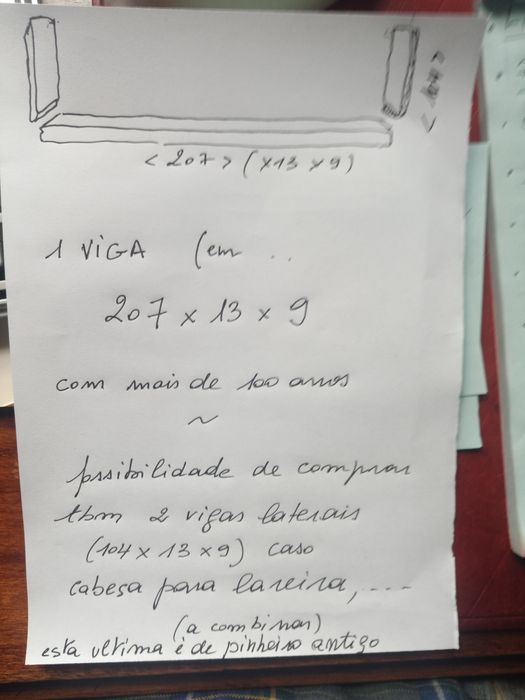 <104>
<207> (x13 x 9)
1 VIGA (em ..
207 x 13 x 9
com mais de 100 anos
~
pssibilidade de comprar
tbm 2 vigas laterais
(104 x 13 x 9) caso
cabesa para lareira, ....
(a combinar)
esta ultima é de pinheiro antigo